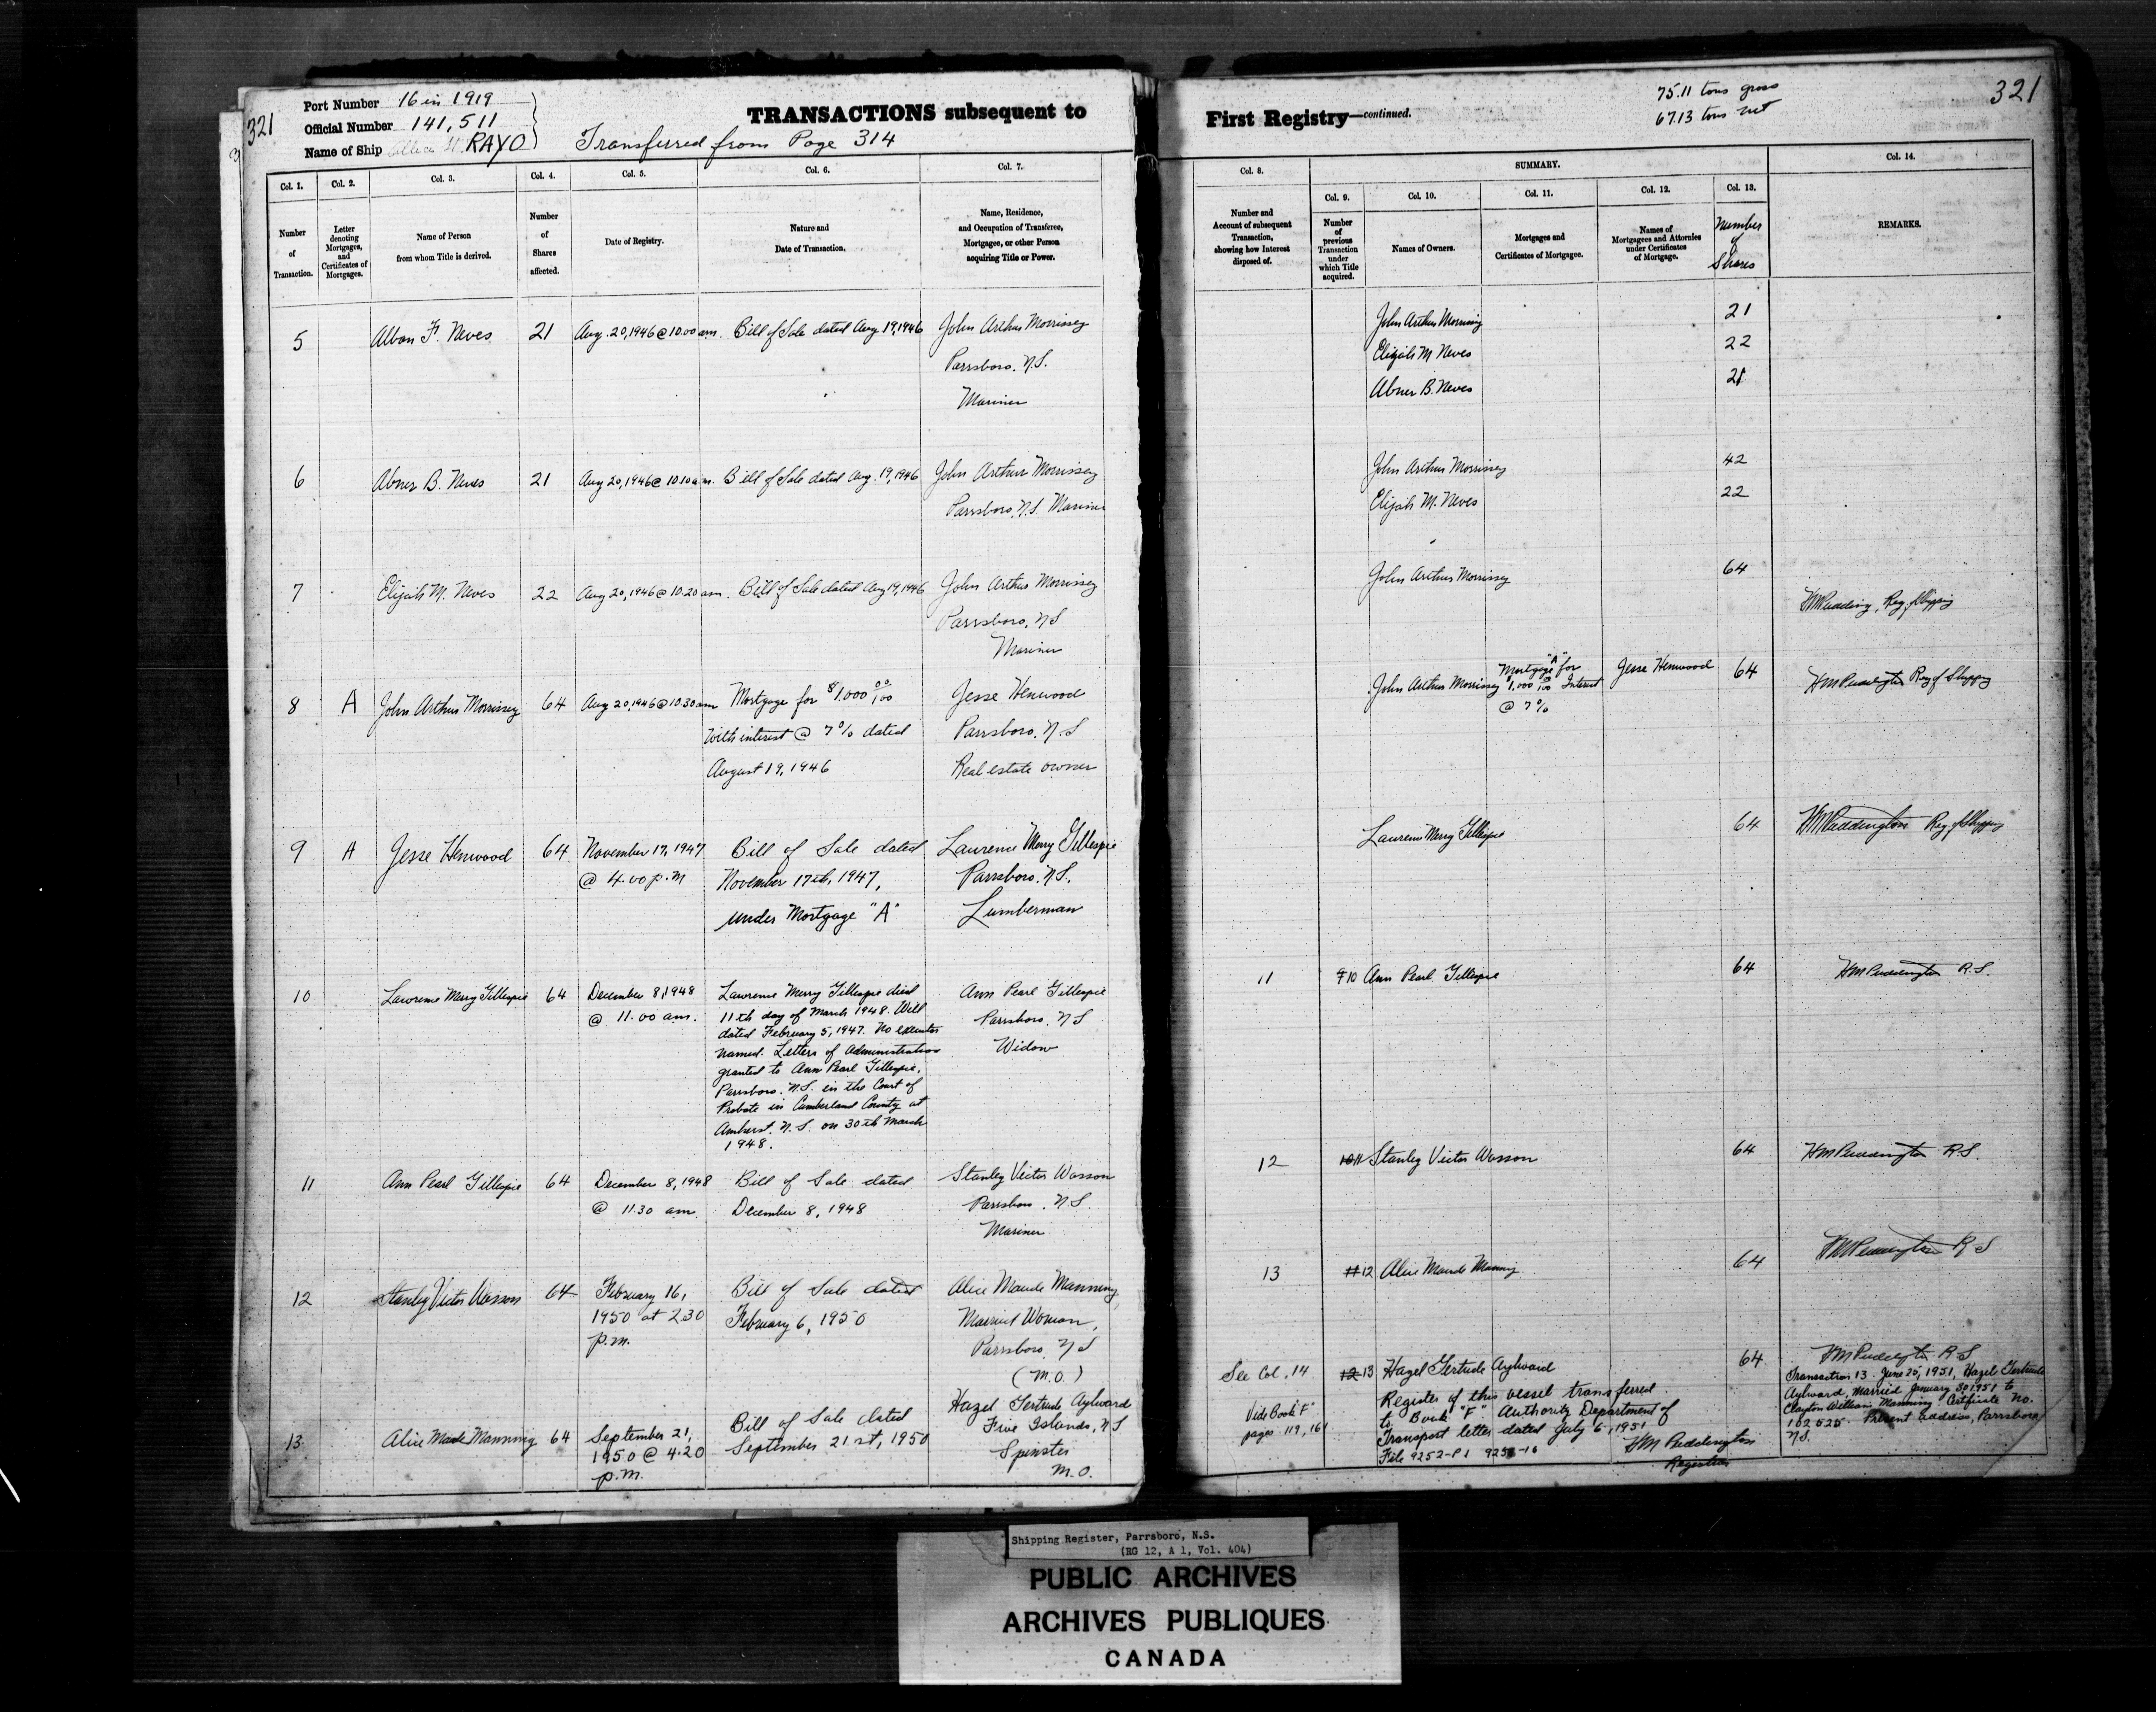 321
Port Number 16 in 1919
Official Number 141,511
Name of Ship RAYO
Transferred from Page 314
TRANSACTIONS subsequent to
Col. 1.
Number
of
Transaction.
Col. 2.
Letter
denoting
Mortgages,
and
Certificates of
Mortgages.
Col. 3.
Name of Person
from whom Title is derived.
Col. 4.
Number
of
Shares
affected.
Col. 5.
Date of Registry.
Col. 6.
Nature and
Date of Transaction.
Col. 7.
Name, Residence,
and Occupation of Transferee,
Mortgagee, or other Person
acquiring Title or Power.
5 Albon F. Neves 21 Aug. 20, 1946 @ 10.00 am. Bill of Sale dated Aug 19, 1946 John Arthur Morrissey
Parrsboro, N.S.
Mariner
6 Abner B. Neves 21 Aug 20, 1946 @ 10.10 a.m. Bill of Sale dated Aug. 19, 1946 John Arthur Morrissey
Parrsboro, N.S. Mariner
7 Elijah M. Neves 22 Aug 20, 1946 @ 10.20 am. Bill of Sale dated Aug 19, 1946 John Arthur Morrissey
Parrsboro, N.S
Mariner
8 A John Arthur Morrissey 64 Aug 20, 1946 @ 10.30 am Mortgage for $1,000 00/100 Jesse Henwood
with interest @ 7% dated Parrsboro, N.S
August 19, 1946 Real estate owner
9 A Jesse Henwood 64 November 17, 1947 Bill of Sale dated Laurence Merry Gillespie
@ 4.00 p.m November 17th, 1947, Parrsboro, N.S.,
under Mortgage "A" Lumberman
10 Lawrence Merry Gillespie 64 December 8, 1948 Lawrence Merry Gillespie died Ann Pearl Gillespie
@ 11.00 am. 11th day of March 1948. Will Parrsboro, N.S
dated February 5, 1947. No executor
named. Letters of Administration Widow
granted to Ann Pearl Gillespie,
Parrsboro, N.S. in the Court of
Probate in Cumberland County at
Amherst, N.S. on 30th March
1948.
11 Ann Pearl Gillespie 64 December 8, 1948 Bill of Sale dated Stanley Victor Wasson
@ 11.30 am. December 8, 1948 Parrsboro, N.S.
Mariner
12 Stanley Victor Wasson 64 February 16, Bill of Sale dated Alice Maude Manning,
1950 at 2.30 February 6, 1950 Married Woman,
p.m. Parrsboro, N.S
(M.O.)
13 Alice Maude Manning 64 September 21, Bill of Sale dated Hazel Gertrude Aylward
1950 @ 4.20 September 21st, 1950 Five Islands, N.S
p.m. Spinster
M.O.
First Registry—continued.
75.11 tons gross
67.13 tons net
321
Col. 8.
Number and
Account of subsequent
Transaction,
showing how Interest
disposed of.
SUMMARY.
Col. 9.
Number
of
previous
Transaction
under
which Title
acquired.
Col. 10.
Names of Owners.
Col. 11.
Mortgages and
Certificates of Mortgages.
Col. 12.
Names of
Mortgagees and Attornies
under Certificates
of Mortgage.
Col. 13.
Number
of
Shares
Col. 14.
REMARKS.
John Arthur Morrissey 21
Elijah M Neves 22
Abner B. Neves 21
John Arthur Morrissey 42
Elijah M. Neves 22
John Arthur Morrissey 64
Reg. of Shipping
John Arthur Morrissey Mortgage "A" for $1,000 00/100 Interest @ 7% Jesse Henwood 64 HM Puddington Reg of Shipping
Laurence Merry Gillespie 64 HM Puddington Reg. of Shipping
11 9 10 Ann Pearl Gillespie 64 HM Puddington R.S.
12 10 11 Stanley Victor Wasson 64 HM Puddington R.S.
13 11 12 Alice Maude Manning 64 HM Puddington R S
See Col. 14 12 13 Hazel Gertrude Aylward 64 HM Puddington R S
Vide Book "F"
pages 119, 161
Register of this vessel transferred
to Book "F" Authority Department of
Transport letter dated July 6, 1951
File 9252-P1 HM Puddington
Registrar
Transaction 13. June 25, 1951, Hazel Gertrude
Aylward, Married January 30 1951 to
Clayton William Manning. Certificate No.
102525. Present address, Parrsboro
N.S.
Shipping Register, Parrsboro, N.S.
(RG 12, A 1, Vol. 404)
PUBLIC ARCHIVES
ARCHIVES PUBLIQUES
CANADA